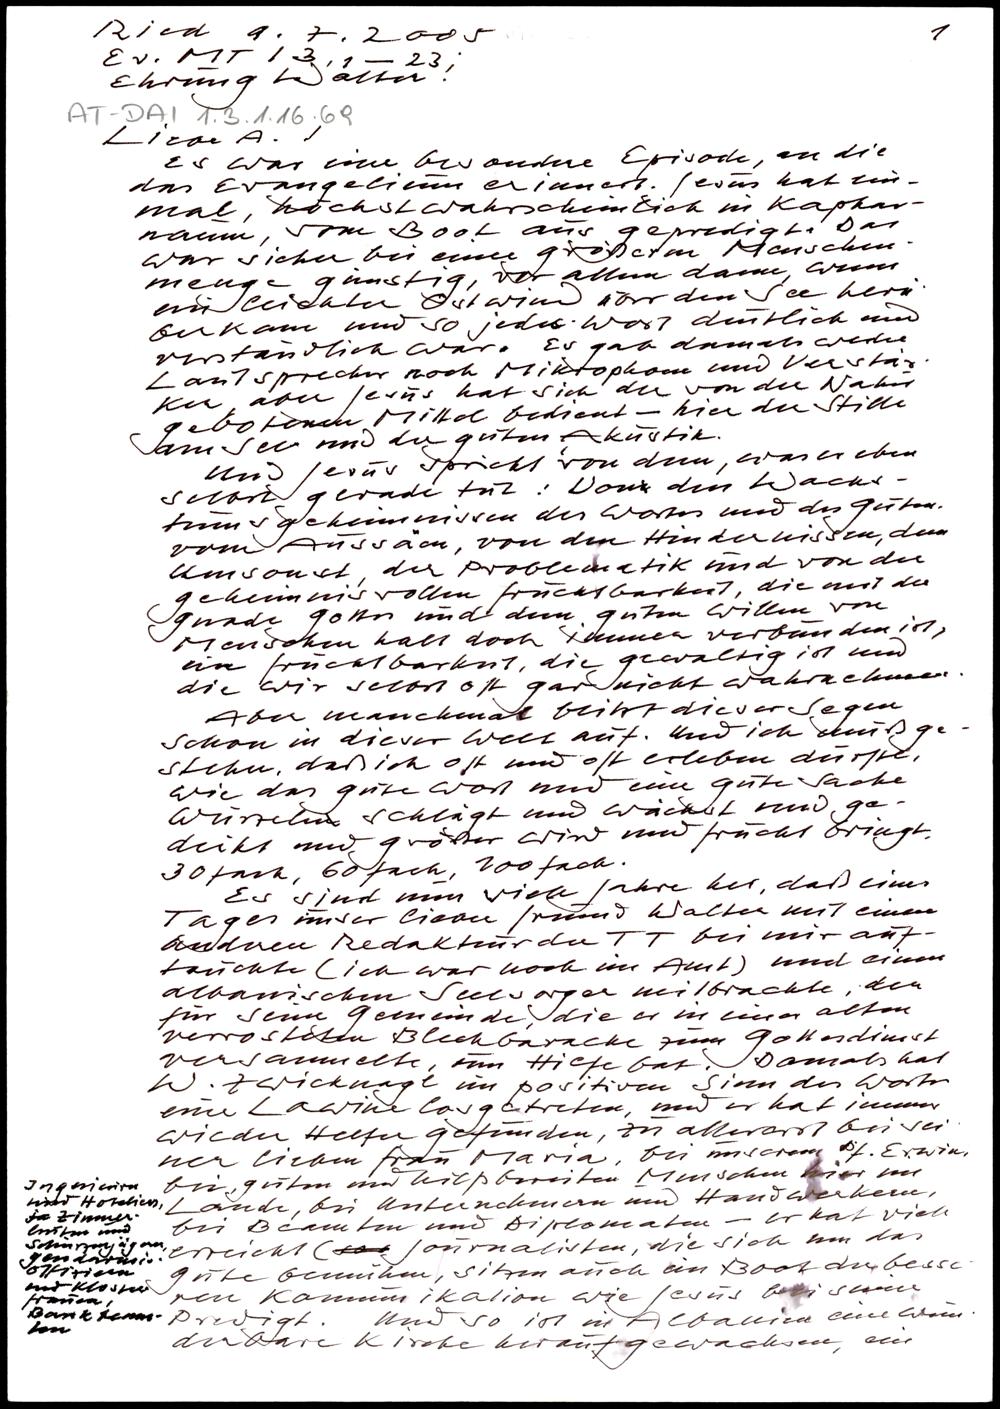 Ried 9.7.2005
1
Ev. MT 13,1-23;
Ehrung Walter!
AT-DAI 1.3.1.16.69
Liebe A.!
Es war eine besondere Episode, an die
das Evangelium erinnert. Jesus hat ein-
mal, höchstwahrscheinlich in Kaphar-
naum, vom Boot aus gepredigt. Das
war sicher bei einer größeren Menschen-
menge günstig, vor allem dann, wenn
ein leichter Ostwind über den See herü-
berkam und so jedes Wort deutlich und
verständlich war. Es gab damals weder
Lautsprecher noch Mikrophone und Verstär-
ker, aber Jesus hat sich der von der Natur
gebotenen Mittel bedient - hier der Stille
am See und der guten Akustik.
Und Jesus spricht von dem, was er eben
selbst gerade tut: Von den Wachs-
tumsgeheimnissen des Wortes und des Guten.
vom Aussäen, von den Hindernissen, dem
Umsonst, der Problematik und von der
geheimnisvollen Fruchtbarkeit, die mit der
Gnade Gottes und dem guten Willen von
Menschen halt doch immer verbunden ist,
eine Fruchtbarkeit, die gewaltig ist und
die wir selbst oft gar nicht wahrnehmen.
Aber manchmal leuchtet dieser Segen
schon in dieser Welt auf. Und ich muß ge-
stehen, daß ich oft und oft erleben durfte,
wie das gute Wort und eine gute Sache
Wurzeln schlägt und wächst und ge-
deiht und größer wird und Frucht bringt.
30fach, 60fach, 100fach.
Es sind nun viele Jahre her, daß eines
Tages unser lieber Freund Walter mit einem
anderen Redakteur der TT bei mir auf-
tauchte (ich war noch im Amt) und einen
albanischen Seelsorger mitbrachte, der
für seine Gemeinde, die er in einer alten
verrosteten Blechbaracke zum Gottesdienst
versammelte, um Hilfe bat. Damals hat
W. Zwicknagl im positiven Sinn des Wortes
eine Lawine losgetreten, und er hat immer
wieder Helfer gefunden, zu allererst bei sei-
ner lieben Frau Maria, bei unserem Pf. Erwin,
bei guten und hilfsbereiten Menschen hier im
Lande, bei Unternehmern und Handwerkern,
bei Beamten und Diplomaten - er hat viele
erreicht (Journalisten, die sich um das
Gute bemühen, sitzen auch im Boot der besse-
ren Kommunikation wie Jesus bei seiner
Predigt. Und so ist in Albanien eine wun-
derbare Kirche heraufgewachsen, ein
Ingenieuren
und Hoteliers,
ja Zimmer-
leuten und
Schürzenjägern,
Gendarmerie-
offizieren
und Kloster-
frauen,
Bankbeam-
ten